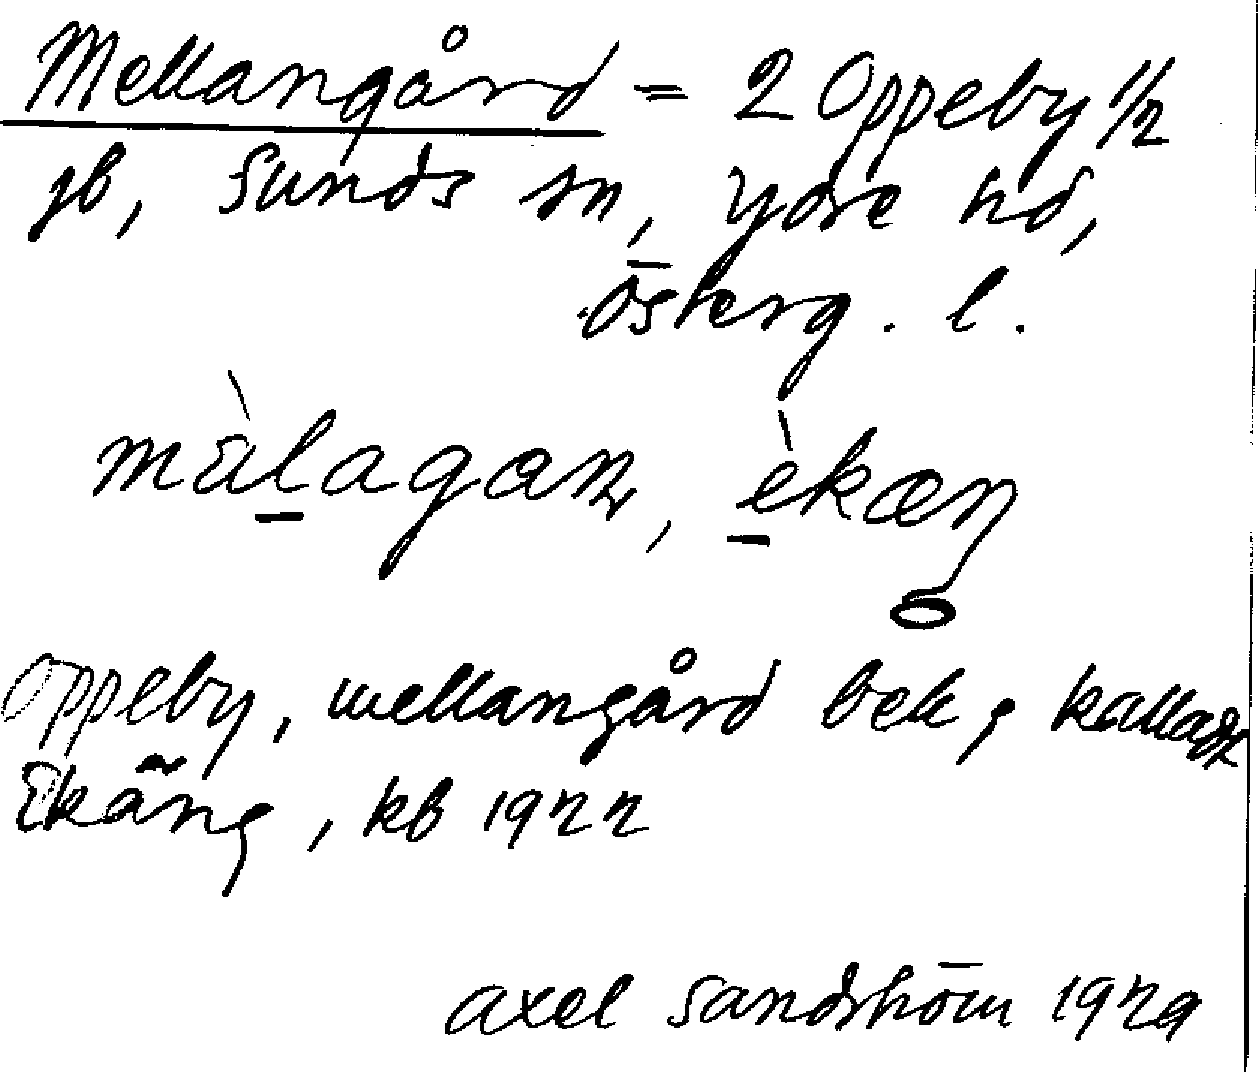 Mellangård = 2 Oppeby 1/2
jb, Sunds sn, Ydre hd,
Österg. l.
màlagan, èkæŋ
Oppeby, mellangård bek, kalladt
Ekäng, kb 1922
Axel Sandström 1929